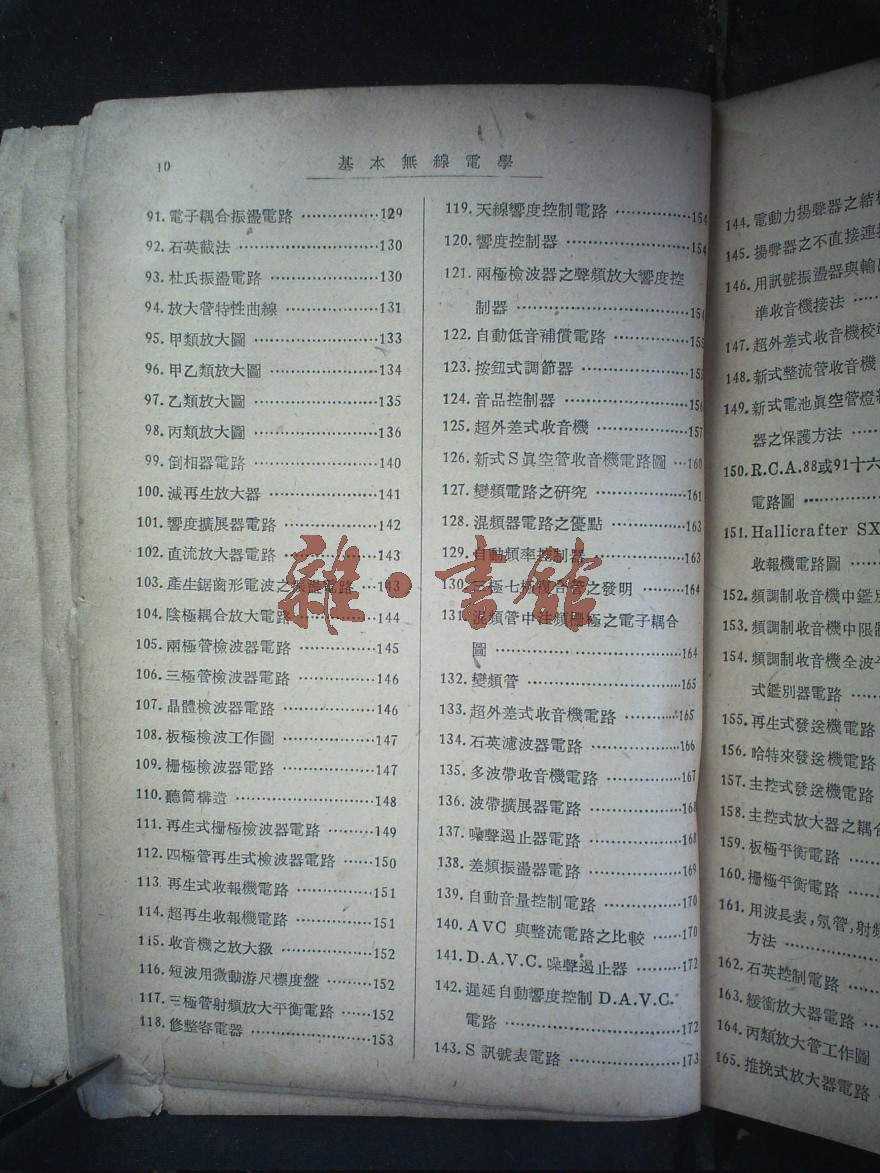 10
基本無線電學
91. 電子耦合振盪電路 ……………129
92. 石英截法 ……………………130
93. 杜氏振盪電路 ………………130
94. 放大管特性曲線 ……………131
95. 甲類放大圖 …………………133
96. 甲乙類放大圖 ………………134
97. 乙類放大圖 …………………135
98. 丙類放大圖 …………………136
99. 倒相器電路 …………………140
100. 減再生放大器 ………………141
101. 響度擴展器電路 ……………142
102. 直流放大器電路 ……………143
103. 產生鋸齒形電波之振盪電路 …143
104. 陰極耦合放大電路 …………144
105. 兩極管檢波器電路 …………145
106. 三極管檢波器電路 …………146
107. 晶體檢波器電路 ……………146
108. 板極檢波工作圖 ……………147
109. 栅極檢波器電路 ……………147
110. 聽筒構造 ……………………148
111. 再生式栅極檢波器電路 ……149
112. 四極管再生式檢波器電路 ……150
113. 再生式收報機電路 …………151
114. 超再生收報機電路 …………151
115. 收音機之放大級 ……………152
116. 短波用微動游尺標度盤 ………152
117. 三極管射頻放大平衡電路 ……152
118. 修整容電器 …………………153
119. 天線響度控制電路 ……………154
120. 響度控制器 …………………154
121. 兩極檢波器之聲頻放大響度控
制器 …………………………154
122. 自動低音補償電路 ……………155
123. 按鈕式調節器 ………………155
124. 音品控制器 …………………156
125. 超外差式收音機 ……………157
126. 新式S眞空管收音機電路圖 …160
127. 變頻電路之研究 ……………161
128. 混頻器電路之優點 ……………163
129. 自動頻率控制器 ……………163
130. 三極七極複合管之發明 ………164
131. 混頻管中注頻栅極之電子耦合
圖 ……………………………164
132. 變頻管 ………………………165
133. 超外差式收音機電路 …………165
134. 石英濾波器電路 ……………166
135. 多波帶收音機電路 ……………167
136. 波帶擴展器電路 ……………168
137. 噪聲遏止器電路 ……………168
138. 差頻振盪器電路 ……………169
139. 自動音量控制電路 ……………170
140. AVC 與整流電路之比較 ……170
141. D.A.V.C. 噪聲遏止器 ………172
142. 遲延自動響度控制 D.A.V.C.
電路 …………………………172
143. S 訊號表電路 ………………173
144. 電動力揚聲器之結構
145. 揚聲器之不直接連接
146. 用訊號振盪器與輸出
準收音機接法 ……
147. 超外差式收音機校準
148. 新式整流管收音機
149. 新式電池眞空管燈
器之保護方法 ……
150. R.C.A.88或91十六
電路圖 ……………
151. Hallicrafter SX
收報機電路圖 ……
152. 頻調制收音機中鑑別
153. 頻調制收音機中限制
154. 頻調制收音機全波平
式鑑別器電路 ……
155. 再生式發送機電路
156. 哈特來發送機電路
157. 主控式發送機電路
158. 主控式放大器之耦合
159. 板極平衡電路 ……
160. 栅極平衡電路 ……
161. 用波長表，氖管，射頻
方法 ………………
162. 石英控制電路 ……
163. 緩衝放大器電路 …
164. 丙類放大管工作圖
165. 推挽式放大器電路
雜·書館